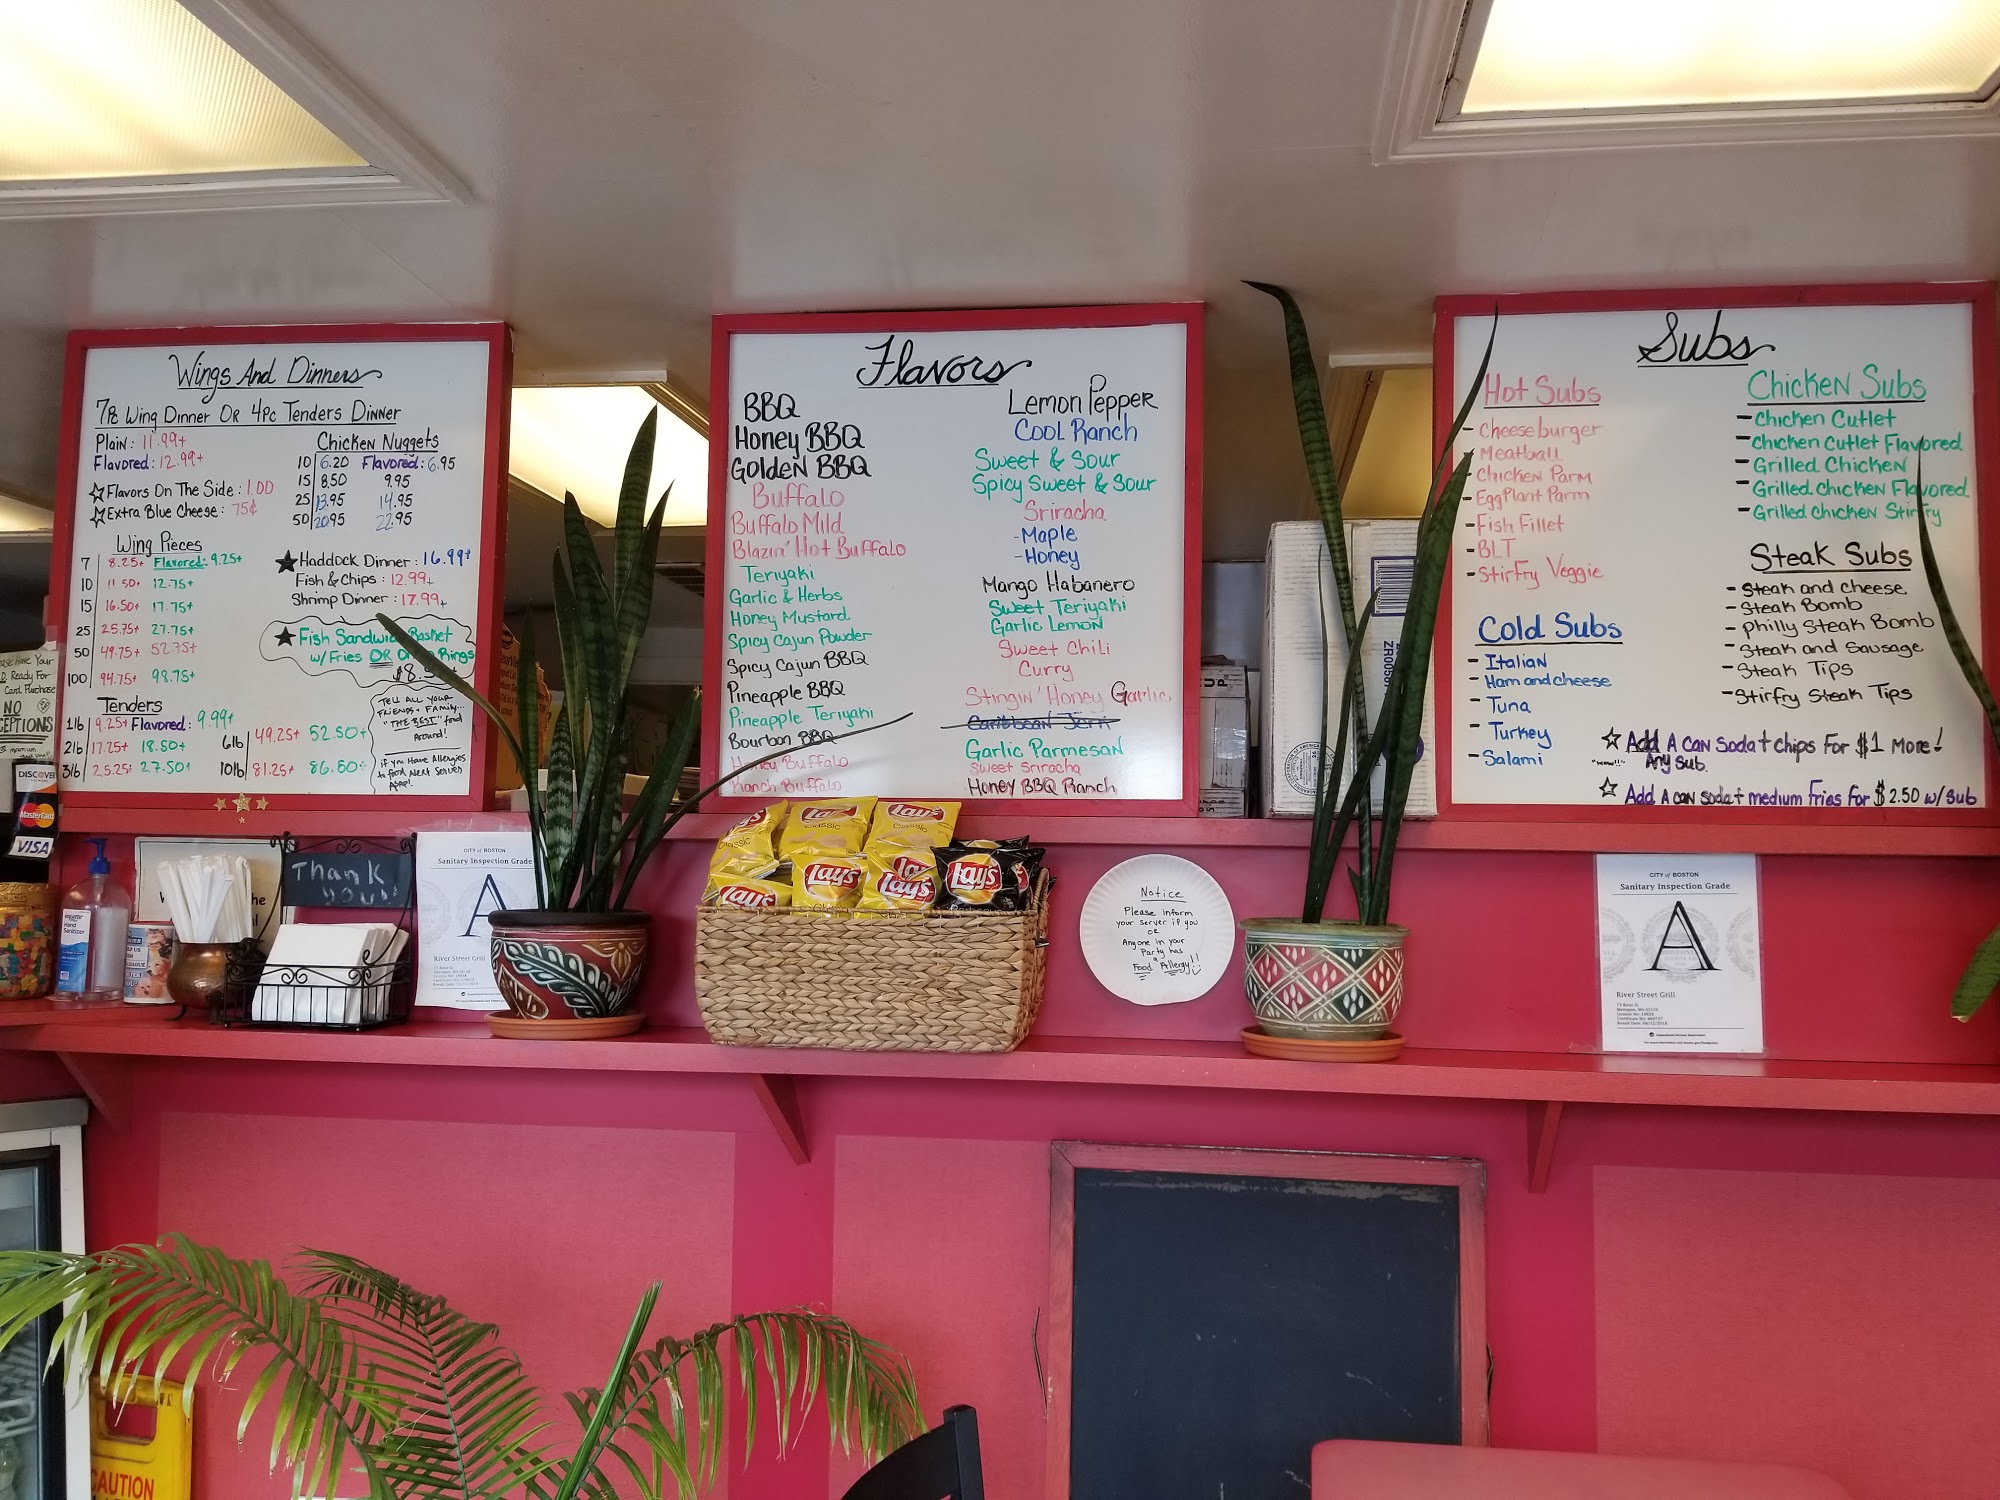 Wings And Dinners
7Pc Wing Dinner Or 4Pc Tenders Dinner
Plain: 11.99+
Flavored: 12.99+
☆Flavors On The Side: 1.00
☆Extra Blue Cheese: 75¢
Chicken Nuggets
10 6.20 Flavored: 6.95
15 8.50 9.95
25 13.95 14.95
50 20.95 22.95
Wing Pieces
7 8.25+ Flavored: 9.25+
10 11.50+ 12.75+
15 16.50+ 17.75+
25 25.75+ 27.75+
50 49.75+ 52.75+
100 94.75+ 98.75+
★Haddock Dinner: 16.99+
Fish & Chips: 12.99+
Shrimp Dinner: 17.99+
★Fish Sandwich Basket
w/ Fries OR Rings
Tenders
1lb 9.25+ Flavored: 9.99+
2lb 17.25+ 18.50+
3lb 25.25+ 27.50+
6lb 49.25+ 52.50+
10lb 81.25+ 86.50+
TELL ALL YOUR
FRIENDS + FAMILY...
"THE BEST" food
Around!
if you Have Allergies
to food Alert Server
ASAP!
Flavors
BBQ
Honey BBQ
Golden BBQ
Buffalo
Buffalo Mild
Blazin' Hot Buffalo
Teriyaki
Garlic & Herbs
Honey Mustard
Spicy Cajun Powder
Spicy Cajun BBQ
Pineapple BBQ
Pineapple Teriyaki
Bourbon BBQ
Honey Buffalo
Ranch Buffalo
Lemon Pepper
Cool Ranch
Sweet & Sour
Spicy Sweet & Sour
Sriracha
-Maple
-Honey
Mango Habanero
Sweet Teriyaki
Garlic Lemon
Sweet Chili
Curry
Stingin' Honey Garlic
Caribbean Jerk
Garlic Parmesan
Sweet Sriracha
Honey BBQ Ranch
Subs
Hot Subs
- Cheeseburger
- Meatball
- Chicken Parm
- EggPlant Parm
- Fish Fillet
- BLT
- Stirfry Veggie
Cold Subs
- Italian
- Ham and cheese
- Tuna
- Turkey
- Salami
Chicken Subs
- Chicken Cutlet
- Chicken Cutlet Flavored
- Grilled Chicken
- Grilled Chicken Flavored
- Grilled Chicken Stirfry
Steak Subs
- Steak and cheese
- Steak Bomb
- Philly Steak Bomb
- Steak and Sausage
- Steak Tips
- Stirfry Steak Tips
☆ Add A can soda + chips For $1 More!
"WOW!!" Any Sub.
☆ Add A can soda + medium Fries For $2.50 w/ Sub
Have Your
Ready For
Card Purchase
NO
DISCOVER
MasterCard
VISA
equate
Hand
Sanitizer
Thank
you!
CITY of BOSTON
Sanitary Inspection Grade
A
River Street Grill
Lay's
Classic
Lay's
Classic
Lay's
Classic
Lay's
Lay's
Lay's
Lay's
Lay's
Notice
Please inform
your server if you
OR
Anyone in your
Party has
a
Food Allergy!!
CITY of BOSTON
Sanitary Inspection Grade
A
River Street Grill
CAUTION